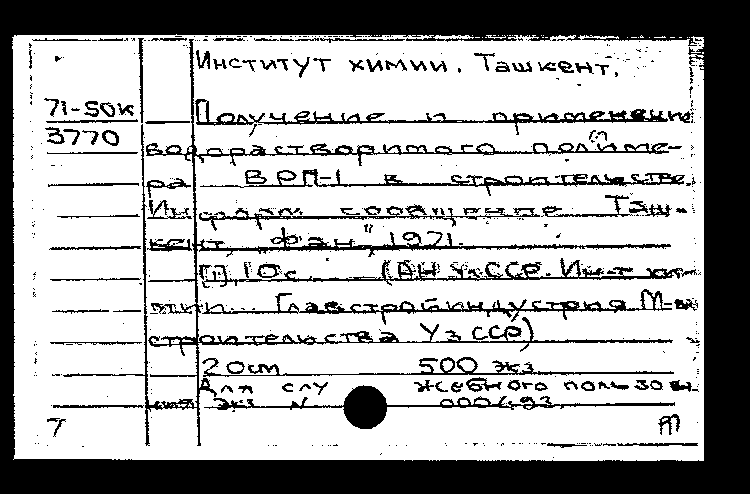 Институт химии. Ташкент.
71-50к
Получение и применени
3770
водорастворимого полиме-
ра ВРП-1 в строительстве.
Информ сообщение Таш-
кент, „Фан", 1971.
[1], 10с. (АН УзССР. Ин-т хи-
мии. Главстройиндустрия М-ва
строительства УзССР)
20см 500 экз
Для служебного пользован
ия экз N 000493.
7 М